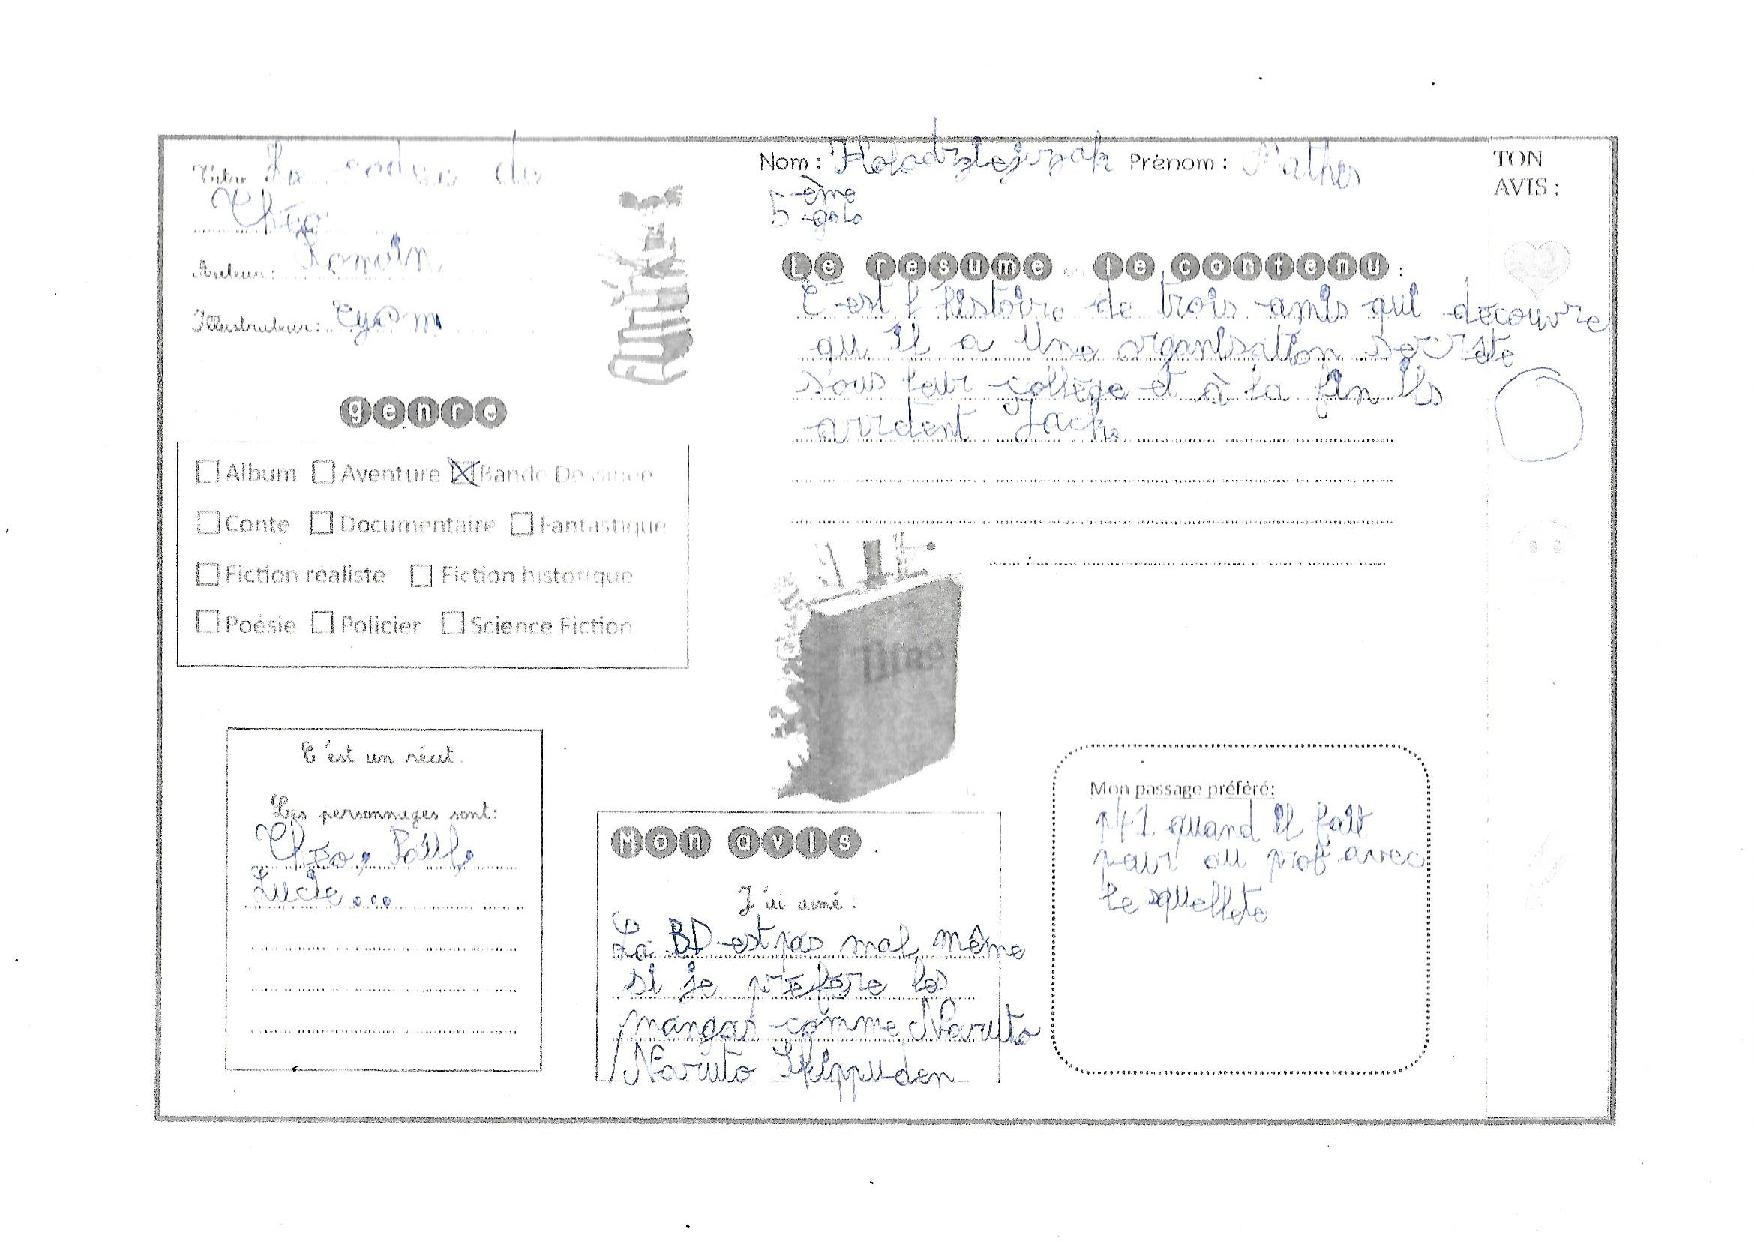 Titre : La codes de
Théo
Auteur : Romain
Illustrateur :
genre
Album Aventure Bande Dessinée
Conte Documentaire Fantastique
Fiction réaliste Fiction historique
Poésie Policier Science Fiction
C'est un récit.
Les personnages sont:
Théo, Paul,
Lucie...
Nom : Prénom :
5 ème
5 galo
Le résumé ou le contenu :
C'est l'histoire de trois amis qui découvre
qu'il a une organisation secrète
sous leur collège et à la fin ils
arrêtent Jack
Titre
Mon avis.
J'ai aimé :
La BD est pas mal, même
si je préfère les
mangas comme Naruto
Naruto Shippuden
Mon passage préféré:
P41 quand il fait
peur au prof avec
le squellete
TON
AVIS :